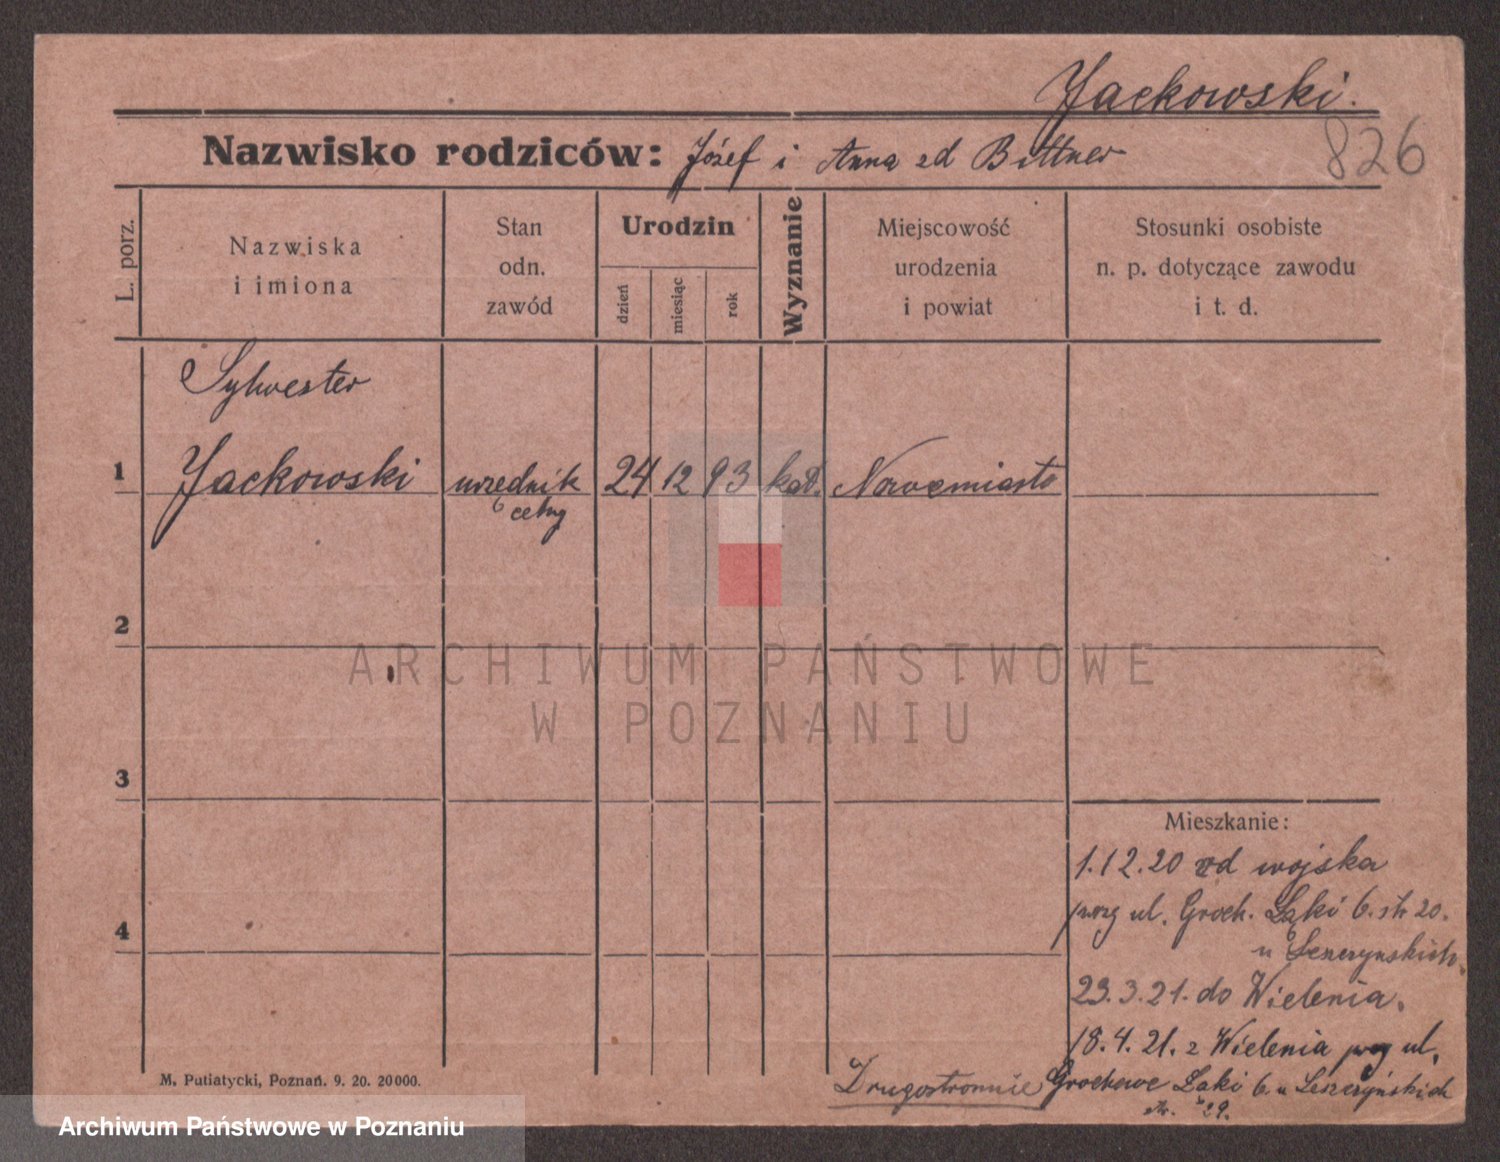 Jackowski.
826
Nazwisko rodziców: Józef i Anna zd Bittner
L. porz.
Nazwiska
i imiona
Stan
odn.
zawód
Urodzin
dzień
miesiąc
rok
Wyznanie
Miejscowość
urodzenia
i powiat
Stosunki osobiste
n. p. dotyczące zawodu
i t. d.
Sylwester
1 Jackowski urzędnik 24 12 93 kat. Nowemiasto
celny
2
ARCHIWUM PAŃSTWOWE
W POZNANIU
3
Mieszkanie:
1.12.20 od wojska
przy ul. Groch. Łąki 6. str 20.
4
u Leszczyńskich.
23.3.21. do Wielenia.
18.4.21. z Wielenia przy ul.
Drugostronnie Grochowe Łąki 6. u Leszczyńskich
M. Putiatycki, Poznań. 9. 20. 20000.
Archiwum Państwowe w Poznaniu